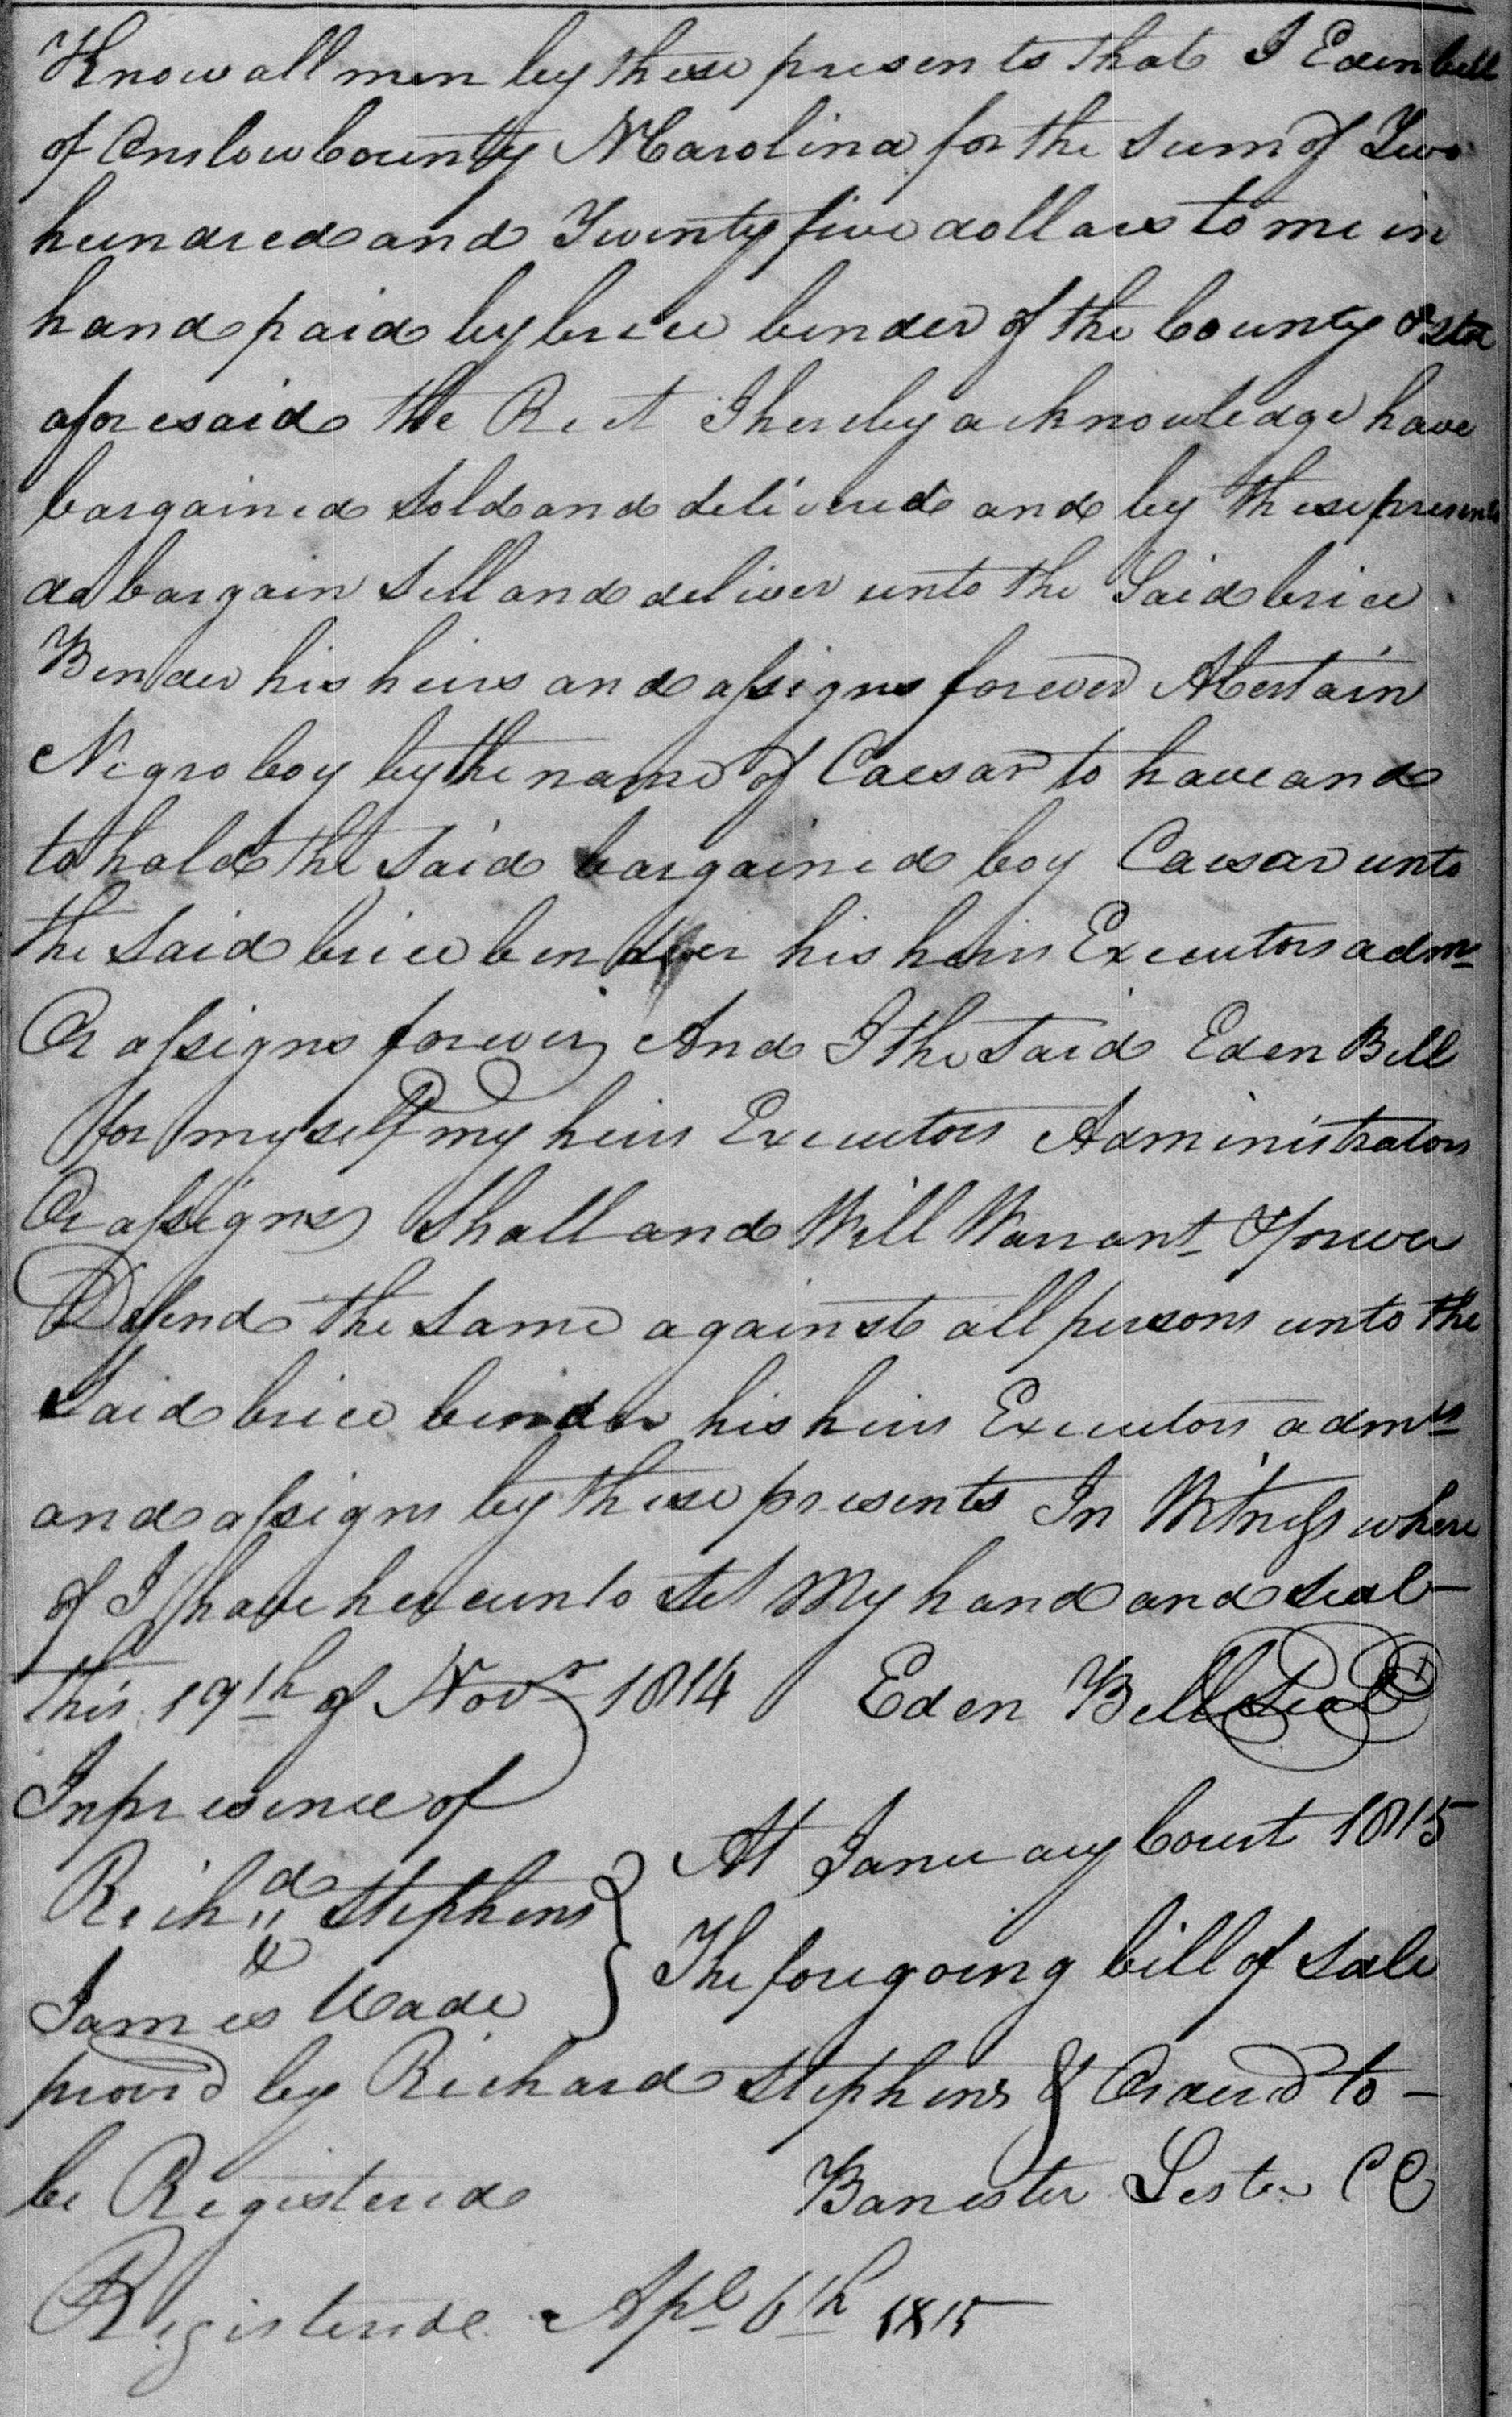 Know all men by these presents that I Eden bell
of Onslow County N Carolina for the sum of Two
hundred and Twenty five dollars to me in
hand paid by brice bender of the County & State
aforesaid the Rect I hereby acknowledge have
bargained sold and delivered and by these presents
do bargain sell and deliver unto the Said brice
Bender his heirs and assigns forever A Certain
Negro boy by the name of Caesar to have and
to hold the said bargained boy Caesar unto
the said brice bender his heirs Executors admrs
Or assigns forever, And I the said Eden Bell
for myself my heirs Executors Administrators
Or assigns Shall and Will Warrant & forever
Defend the same against all persons unto the
said brice bender his heirs Executors admrs
and assigns by these presents In Witness where
of I have hereunto set My hand and seal
this 19th of Novr 1814 Eden Bell Seal
In presence of
Richd Stephens
&
James Wade
At January Court 1815
The foregoing bill of sale
provd by Richard Stephens & Orderd to
be Registered
Banester Lester CC
Registerd Apl 6th 1815